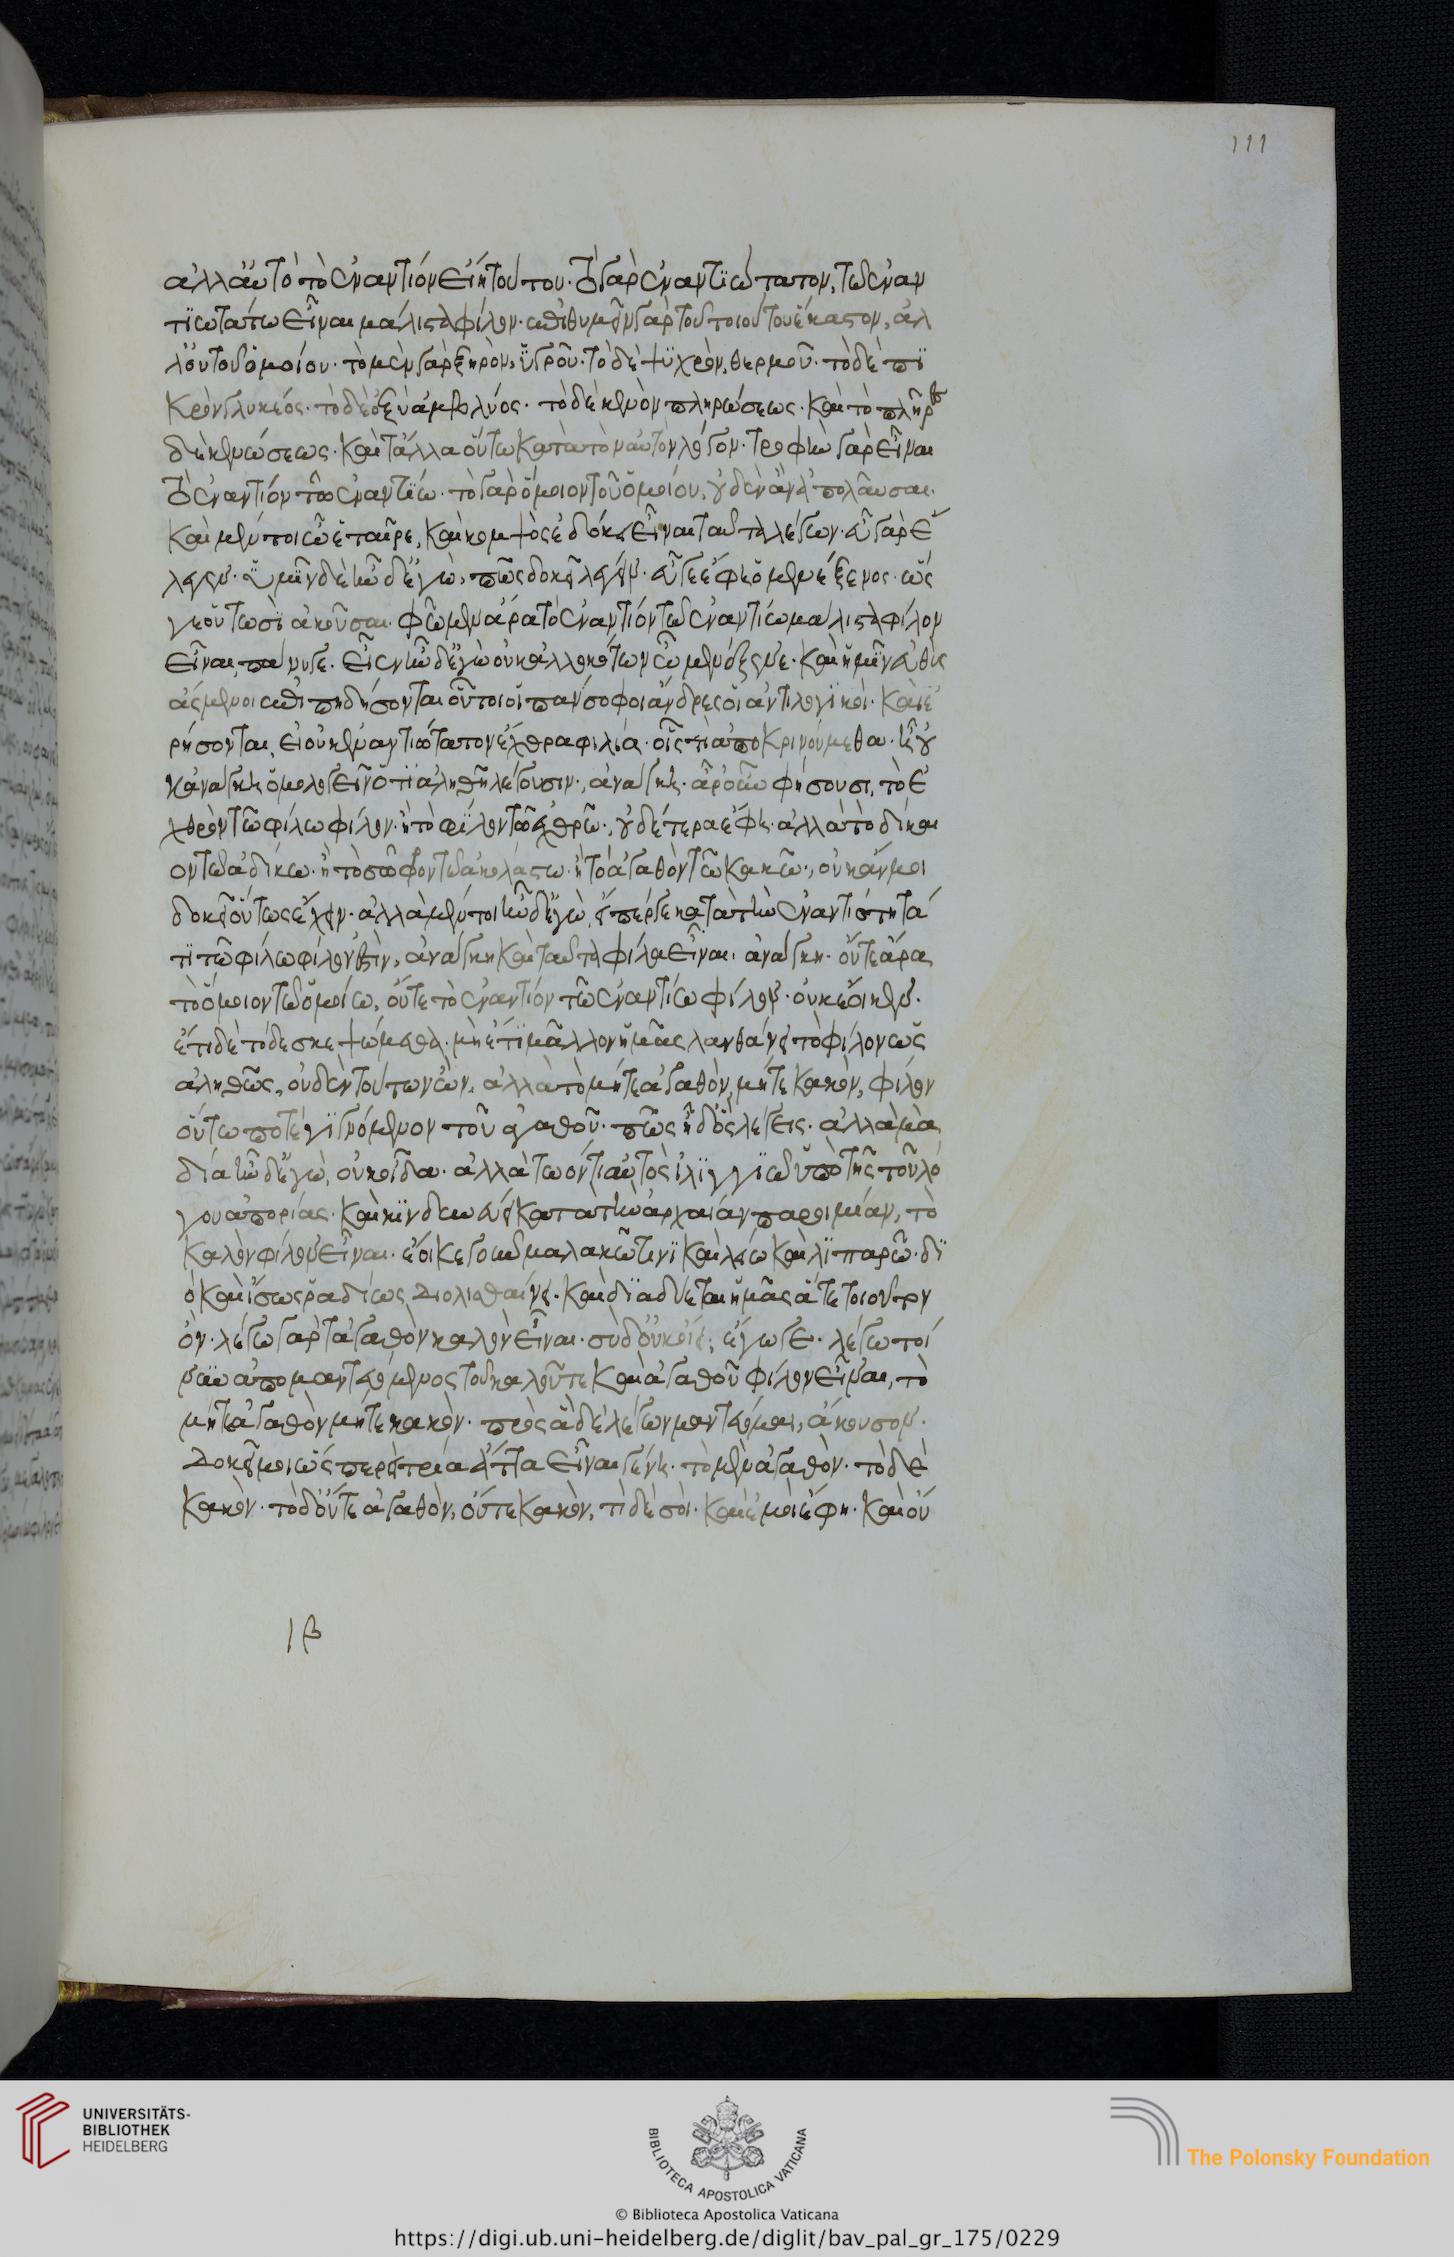 ἀλλ' αὐτὸ τὸ ἐναντίον εἴη τούτου· τὸ γὰρ ἐναντϊώτατον, τῶ ἐναν
τϊωτάτω εἶναι μάλιστα φίλον· ἐπιθυμεῖν γὰρ τοῦ τοιούτου ἕκαστον, ἀλ
λ' οὐ τοῦ ὁμοίου· τὸ μὲν γὰρ ξηρὸν, ὑγροῦ· τὸ δὲ ψϋχρὸν, θερμοῦ· τὸ δὲ πϊ
κρὸν γλυκέος· τὸ δὲ ὀξὺ ἀμβλύος· τὸ δὲ κενὸν πληρώσεως· καὶ τὸ πλῆρες
δὲ κενώσεως· καὶ τἄλλα οὕτω κατὰ τὸν αὐτὸν λόγον· τροφὴν γὰρ εἶναι
τὸ ἐναντίον τῶ ἐναντϊίω· τὸ γὰρ ὅμοιον τοῦ ὁμοίου, οὐδὲν ἂν ἀπολαῦσαι.
καὶ μέντοι ὦ ἑταῖρε, καὶ κομψὸς ἐδόκει εἶναι ταῦτα λέγων· εὖ γὰρ ἔ
λεγεν· ὑμῖν δὲ ἦν δ' ἐγὼ, πῶς δοκεῖ λέγειν· εὖ γε ἔφη ὁ μενέξενος· ὥς
γε οὑτωσῒ ἀκοῦσαι· φῶμεν ἄρα τὸ ἐναντίον τῶ ἐναντίω μάλιστα φίλον
εἶναι, πάνυ γε. εἶεν ἦν δ' ἐγὼ οὐκ ἀλλοκότων ὦ μενέξενε· καὶ ἡμῖν εὐθὺς
ἄσμενοι ἐπιπηδήσονται οὗτοι οἱ πάνσοφοι ἄνδρες οἱ ἀντιλογϊκοὶ· καὶ ἐ
ρήσονται, εἰ οὐκ ἐναντιώτατον ἔχθρα φιλία· οἷς τὶ ἀποκρινούμεθα· ἢ οὐ
κ ἀνάγκη ὁμολογεῖν ὅτϊ ἀληθῆ λέγουσιν· ἀνάγκη· ἆρ' οὖν φήσουσι, τὸ ἐ
χθρὸν τῶ φίλω φίλον· ἢ τὸ φίλον τῶ ἐχθρῶ· οὐδέτερα ἔφη· ἀλλὰ τὸ δίκαι
ον τῶ ἀδίκω· ἢ τὸ σῶφρον τῶ ἀκολάστω· ἢ τὸ ἀγαθὸν τῶ κακῶ· οὐκ ἄν μοι
δοκεῖ οὕτως ἔχειν· ἀλλὰ μέντοι ἦν δ' ἐγὼ, εἴπερ γε κατὰ τὴν ἐναντιότητά
τι τῶ φίλω φίλον ἐστὶν, ἀνάγκη καὶ ταῦτα φίλα εἶναι· ἀνάγκη· οὔτε ἄρα
τὸ ὅμοιον τῶ ὁμοίω, οὔτε τὸ ἐναντίον τῶ ἐναντίω φίλον· οὐκ ἔοικεν·
ἔτι δὲ τόδε σκεψώμεθα· μὴ ἔτϊ μᾶλλον ἡμᾶς λανθάνει τὸ φίλον ὡς
ἀληθῶς, οὐδὲν τούτων ὂν, ἀλλὰ τὸ μήτε ἀγαθὸν, μήτε κακὸν, φίλον
οὕτω ποτὲ γϊγνόμενον τοῦ ἀγαθοῦ· πῶς ἦ δ' ὃς λέγεις· ἀλλὰ μὰ
δία ἦν δ' ἐγὼ, οὐκ οἶδα· ἀλλὰ τῶ ὄντι αὐτὸς ἰλϊγγϊῶ ὑπὸ τῆς τοῦ λό
γου ἀπορίας· καὶ κϊνδυνεύει κατὰ τὴν ἀρχαιάν παροιμίαν, τὸ
καλὸν φίλον εἶναι· ἔοικε γοῦν μαλακῶ τινϊ καὶ λείω καὶ λϊπαρῶ· δϊ
ὸ καὶ ἴσως ῥαδίως διολισθαίνει· καὶ δϊαδύεται ἡμᾶς ἅτε τοιοῦτον
ὄν· λέγω γὰρ τἀγαθὸν καλὸν εἶναι· σὺ δ' οὐκ οἴει; ἔγωγε· λέγω τοί
νυν ἀπομαντευόμενος τοῦ καλοῦ τε καὶ ἀγαθοῦ φίλον εἶναι, τὸ
μήτε ἀγαθὸν μήτε κακὸν· πρὸς ἃ δὲ λέγων μαντεύομαι, ἄκουσον·
δοκεῖ μοι ὡς περεὶ τρία ἄττα εἶναι γένη· τὸ μὲν ἀγαθὸν· τὸ δὲ
κακὸν· τὸ δ' οὔτε ἀγαθὸν, οὔτε κακὸν, τὶ δὲ σοὶ· καὶ ἐμοὶ ἔφη· καὶ οὔ
ιβ
111
UNIVERSITÄTS-
BIBLIOTHEK
HEIDELBERG
BIBLIOTECA APOSTOLICA VATICANA
The Polonsky Foundation
© Biblioteca Apostolica Vaticana
https://digi.ub.uni-heidelberg.de/diglit/bav_pal_gr_175/0229